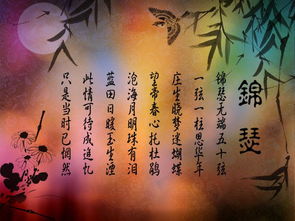 錦瑟
锦瑟无端五十弦
一弦一柱思华年
庄生晓梦迷蝴蝶
望帝春心托杜鹃
沧海月明珠有泪
蓝田日暖玉生烟
此情可待成追忆
只是当时已惘然